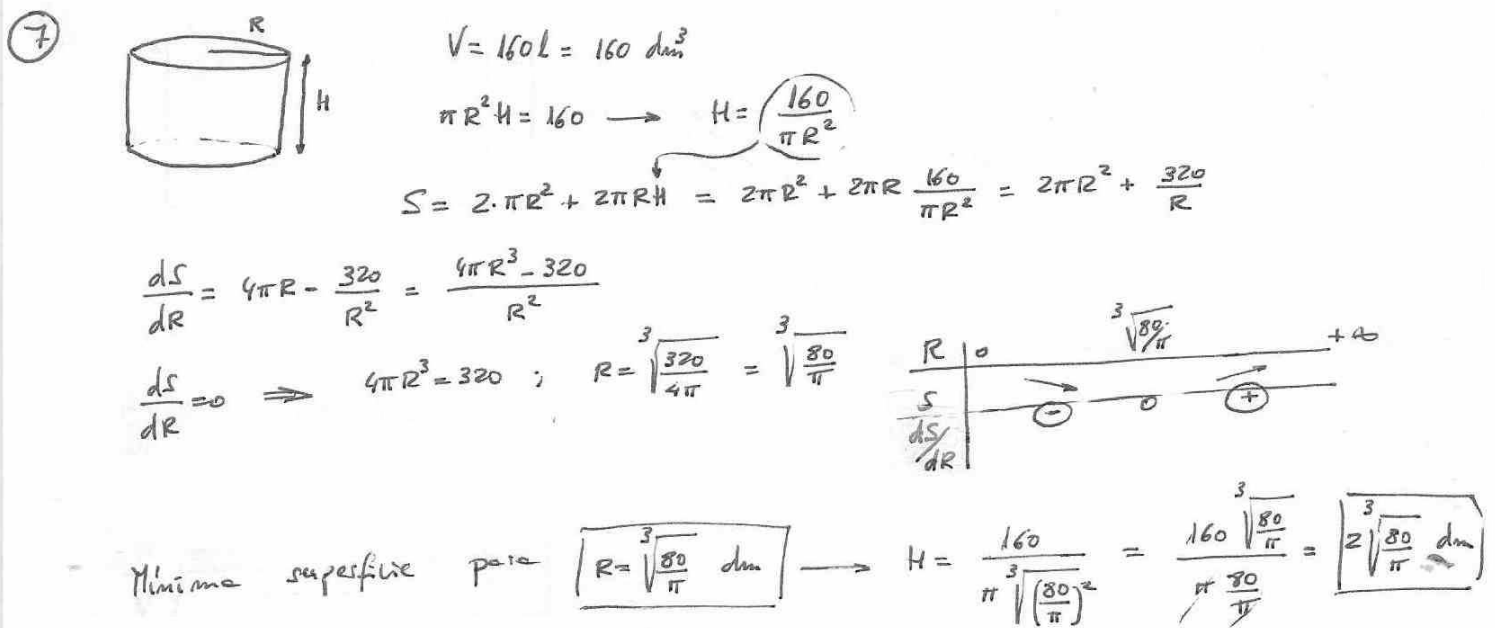 7
R
H
V = 160 l = 160 dm³
πR²H = 160 → H = 160/(πR²)
S = 2·πR² + 2πRH = 2πR² + 2πR 160/(πR²) = 2πR² + 320/R
dS/dR = 4πR - 320/R² = (4πR³ - 320)/R²
dS/dR = 0 ⇒ 4πR³ = 320 ; R = ∛(320/4π) = ∛(80/π)
R | 0 ∛(80/π) +∞
S ↘ ↗
dS/dR - 0 +
Mínima superficie para R = ∛(80/π) dm → H = 160/(π ∛((80/π)²)) = (160 ∛(80/π))/(π 80/π) = 2∛(80/π) dm